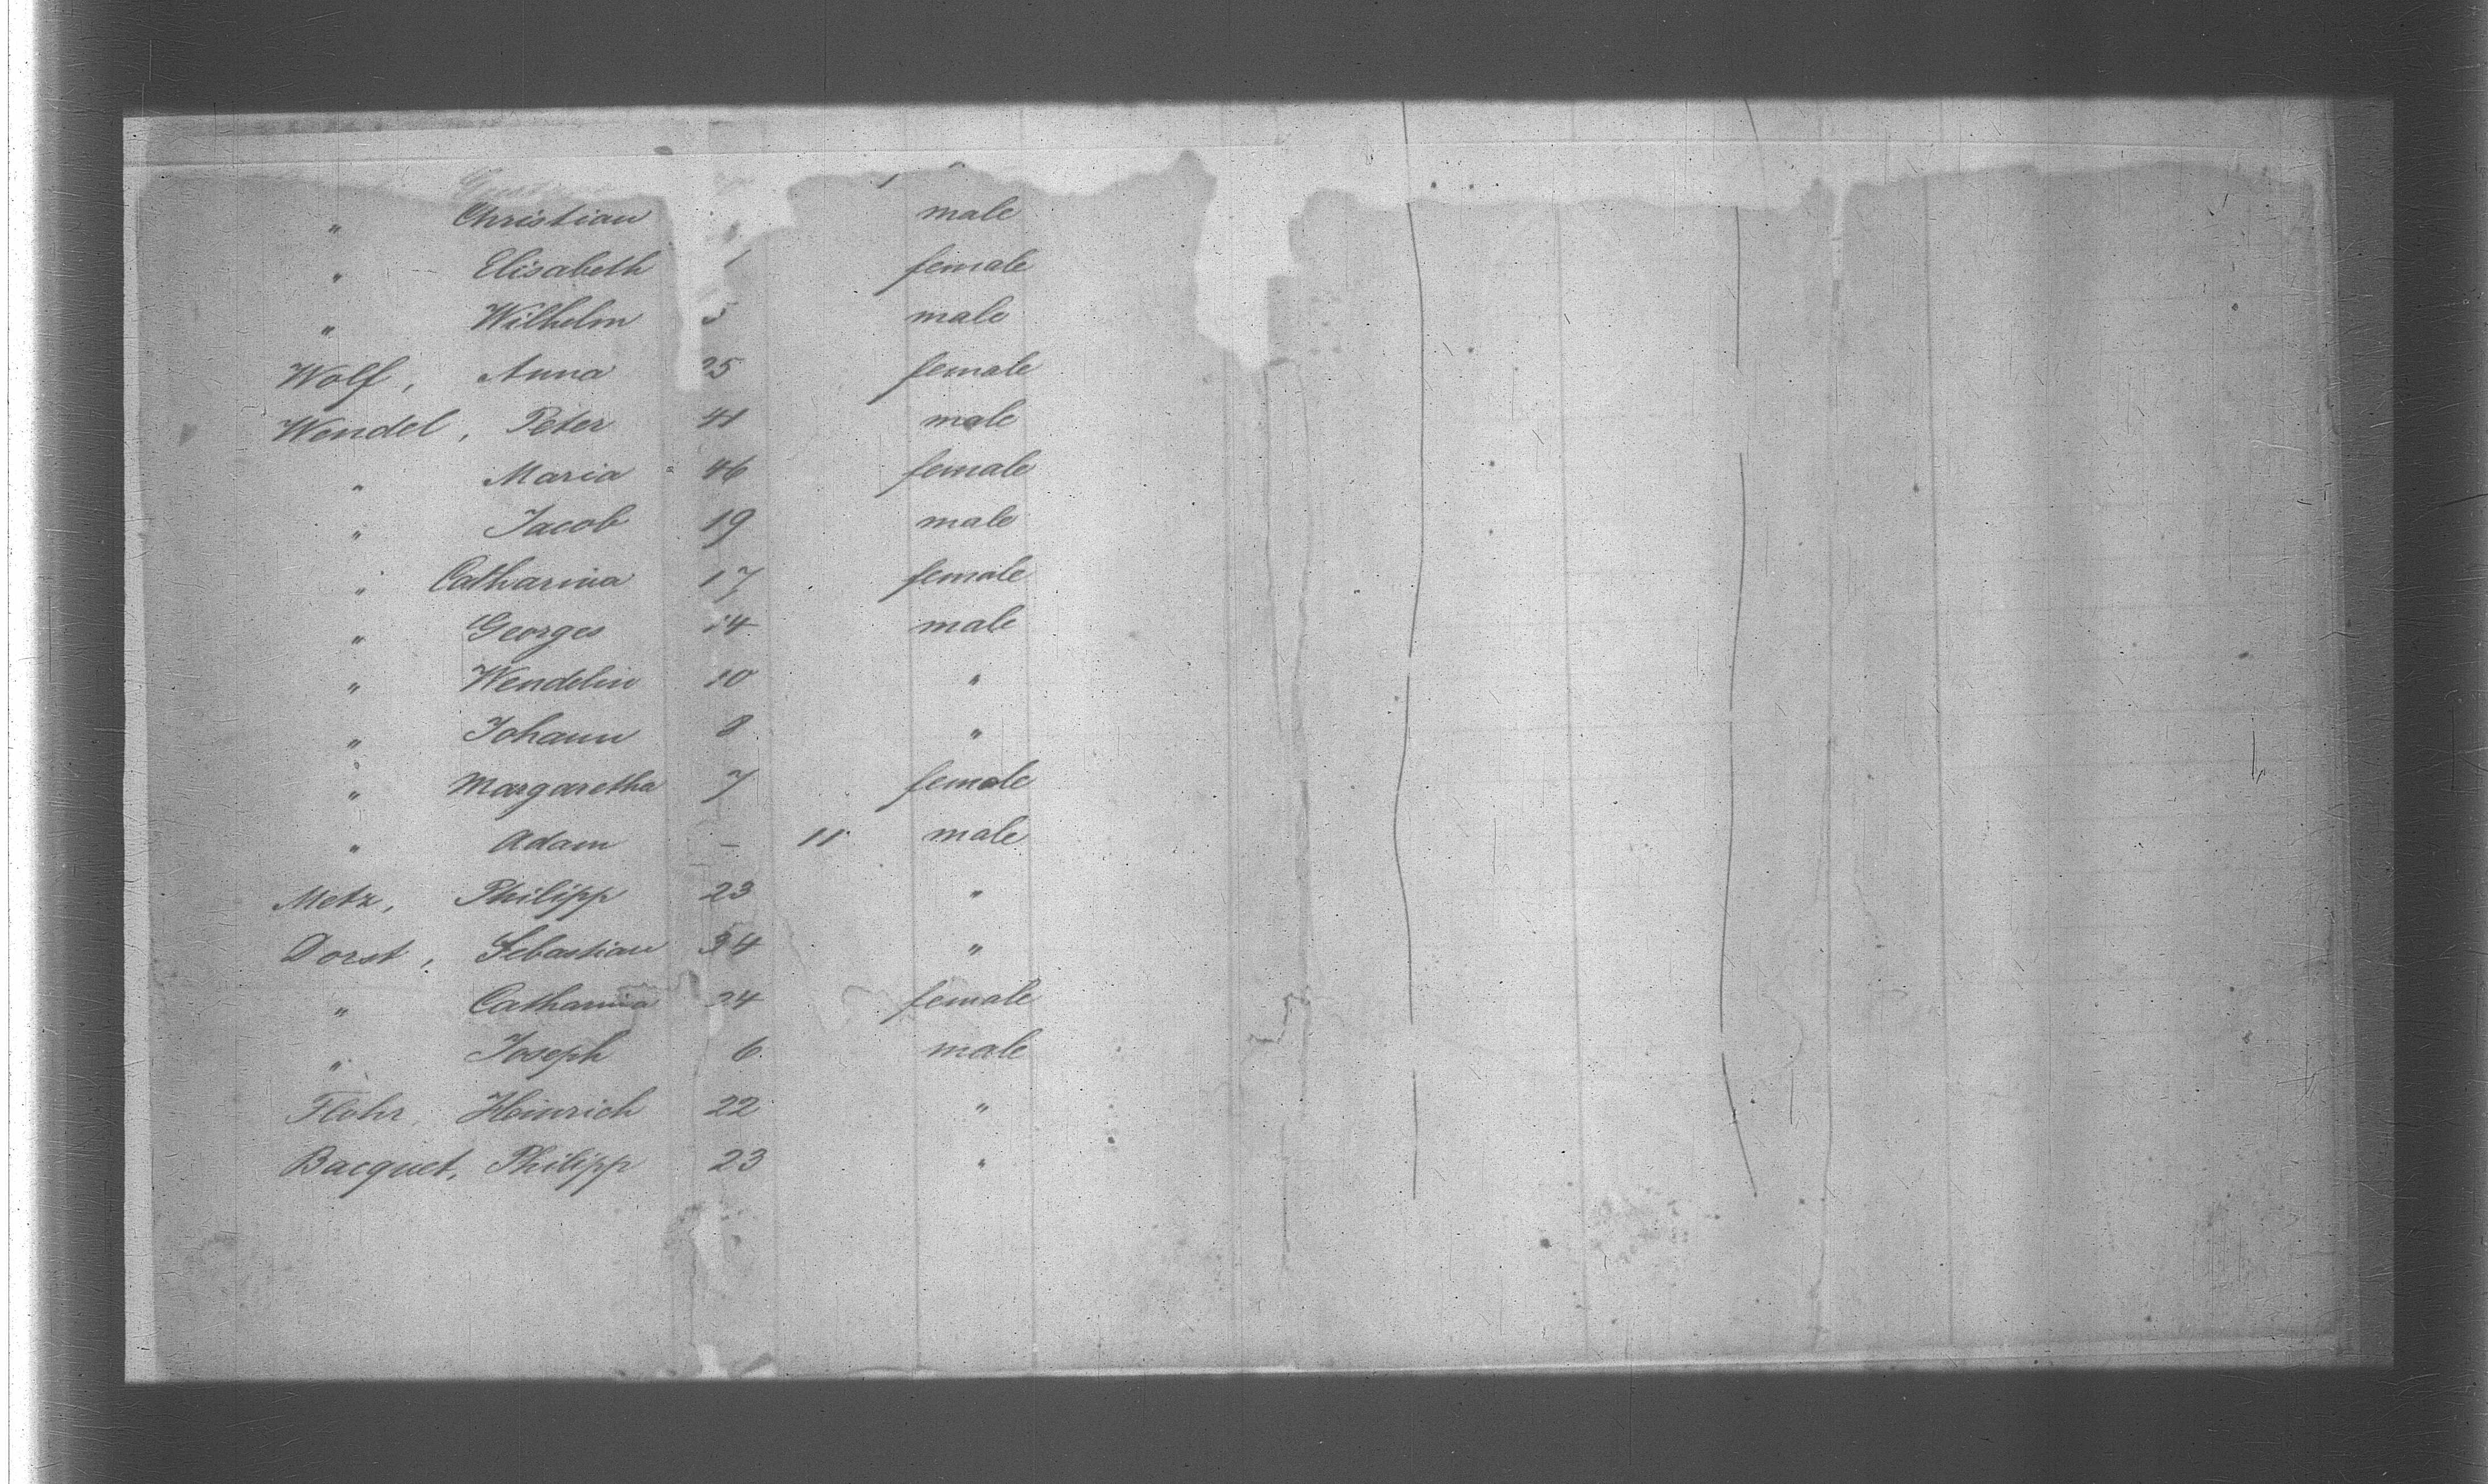 " Christian male
" Elisabeth female
" Wilhelm 5 male
Wolf, Anna 25 female
Wendel, Peter 41 male
" Maria 46 female
" Jacob 19 male
" Catharina 17 female
" Georges 14 male
" Wendelin 10 "
" Johann 8 "
" Margaretha 7 female
" Adam - 11 male
Metz, Philipp 23 "
Dorst, Sebastian 34 "
" Catharina 24 female
" Joseph 6 male
Flohr, Heinrich 22 "
Bacquet, Philipp 23 "